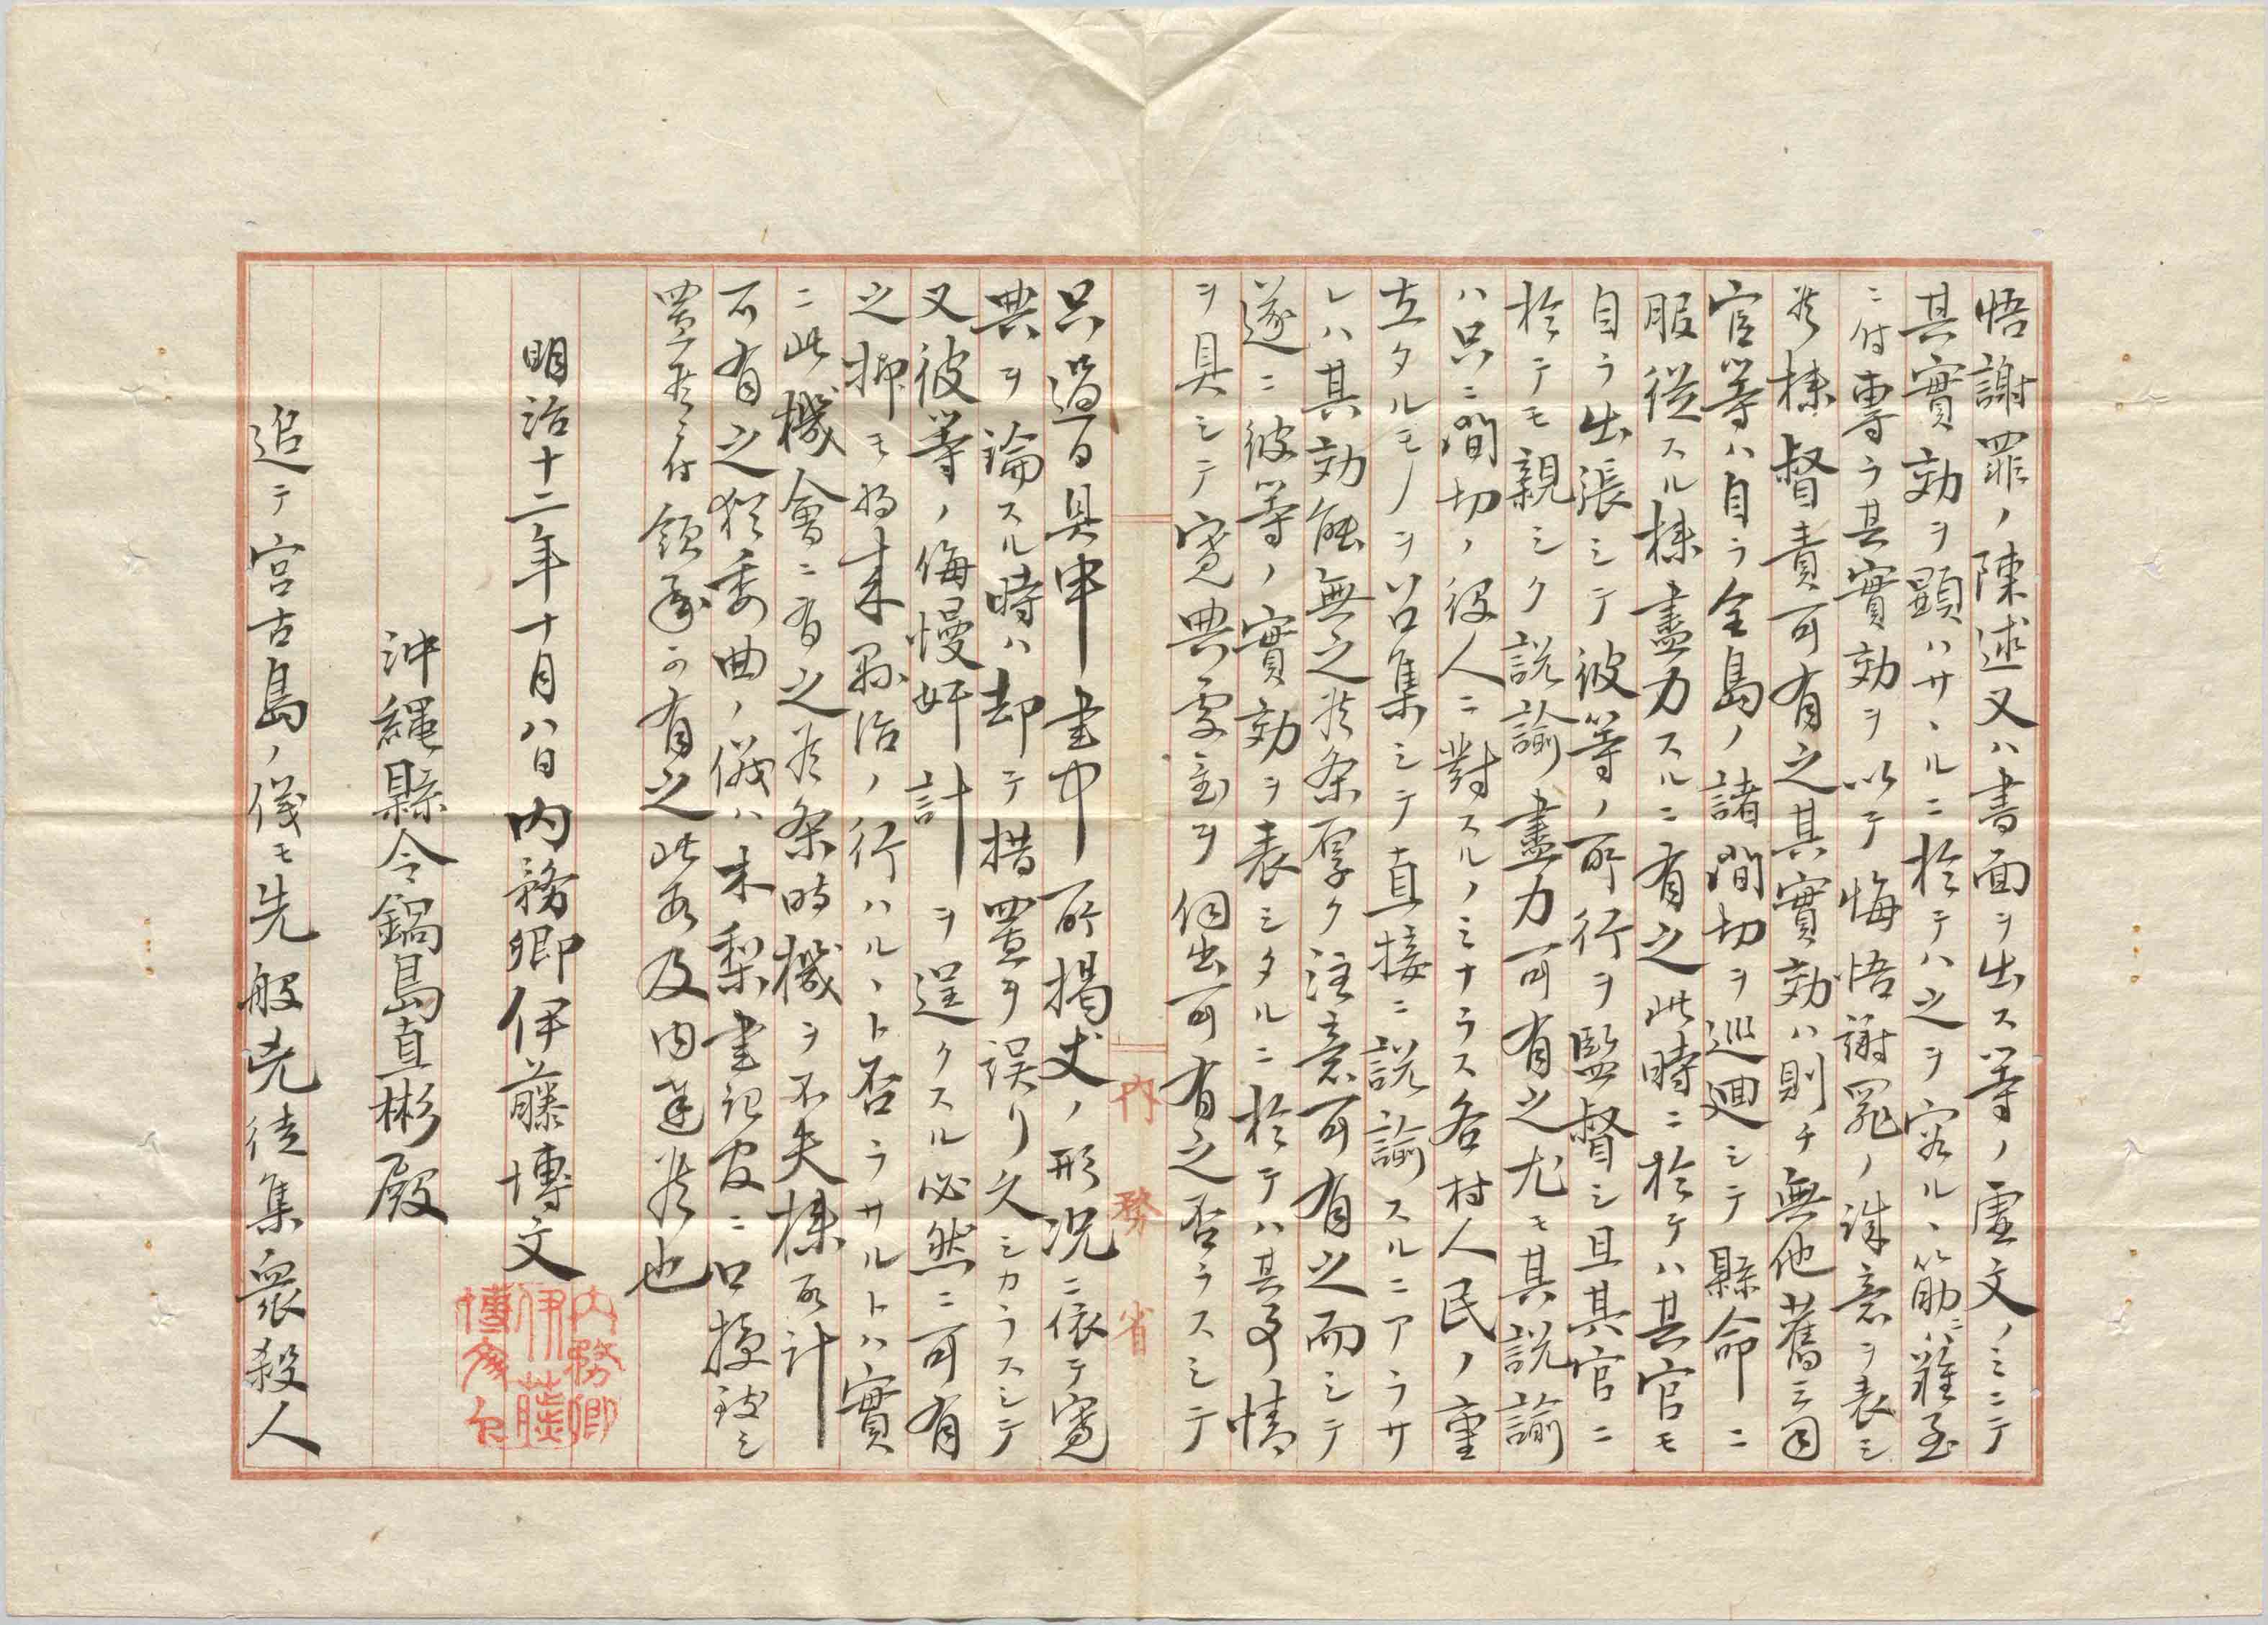 悟謝罪ノ陳述又ハ書面ヲ出ス等ノ虚文ノミニテ
其實効ヲ顕ハサヽルニ於テハ之ヲ容ルヽ筋ニ難至
ニ付専ラ其實効ヲ以テ悔悟謝罪ノ誠意ヲ表シ
候様督責可有之其實効ハ則チ無他舊三司
官等ハ自ラ全島ノ諸間切ヲ巡廻シテ縣命ニ
服從スル様盡力スルニ有之此時ニ於テハ其官モ
自ラ出張シテ彼等ノ所行ヲ監督シ且其官ニ
於テモ親シク説諭盡力可有之尤モ其説諭
ハ只ニ間切ノ役人ニ對スルノミナラス各村人民ノ重
立タルモノヲ召集シテ直接ニ説諭スルニアラサ
レハ其効能無之候条厚ク注意可有之而シテ
遂ニ彼等ノ實効ヲ表シタルニ於テハ其事情
ヲ具シテ寛典處分ヲ伺出可有之否ラスシテ
只過日具申書中所掲ノ形況ニ依テ寛
典ヲ論スル時ハ却テ措置ヲ誤リ久シカラスシテ
又彼等ノ侮慢奸計ヲ逞クスル必然ニ可有
之抑モ将来縣治ノ行ハルヽト否ラサルトハ實
ニ此機會ニ有之候条時機ヲ不失様取計
可有之猶委曲ノ儀ハ木梨書記官ニ口授致シ
置候ニ付領承可有之此段及内達候也
明治十二年十月八日内務卿伊藤博文
沖縄縣令鍋島直彬殿
追テ宮古島ノ儀モ先般兇徒集衆殺人
内務省
内務卿伊藤博文印